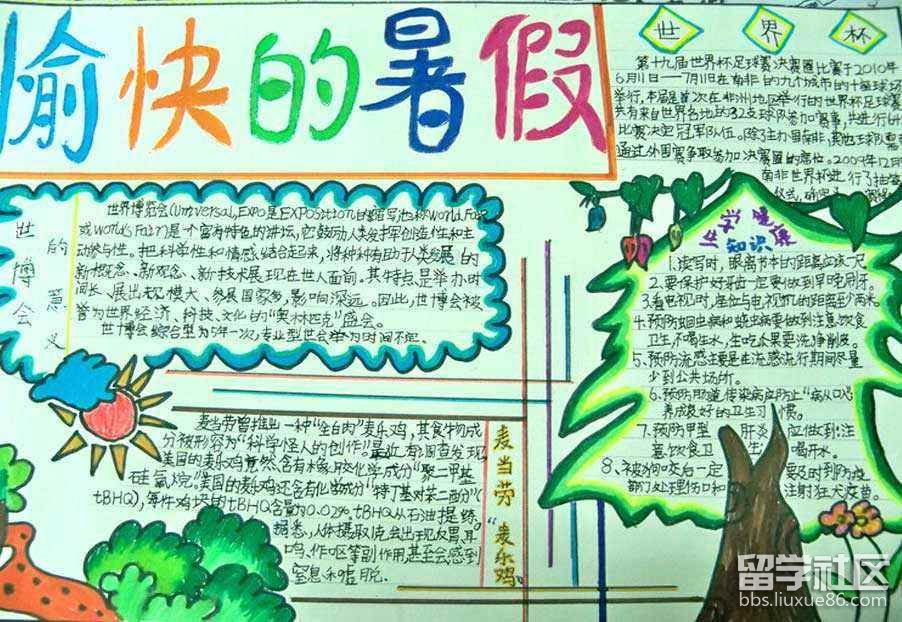 愉快的暑假
世界杯
第十九届世界杯足球赛决赛圈比赛于2010年
6月11日——7月11日在南非的九个城市的十座球场
举行,本届是首次在非洲地区举行的世界杯足球赛
共有来自世界各地的32支球队参加赛事,共进行64
比赛决定冠军队伍。除了主办国南非,其他球队需
通过外围赛争取参加决赛圈的席位。2009年12月
南非世界杯进行了抽签
仪式,
世博会的意义
世界博览会(Universal,Expo是EXPOsition的缩写池称World Fair
或world's Fair)是个富有特色的讲坛,它鼓励人类发挥创造性和主
动参与性。把科学性和情感结合起来,将种种有助于人类发展的
新概念、新观念、新技术展现在世人面前。其特点是举办时
间长、展出规模大、参展国家多,影响深远。因此,世博会被
誉为世界经济、科技、文化的"奥林匹克"盛会。
世博会综合型为5年一次,专业型世会举办时间不定。
健康
知识
1.读写时,眼离书本的距离应该一尺
2.要保护好牙齿一定要做到早晚刷牙。
3.看电视时,座位与电视机的距离至少两米。
4.预防蛔虫病和蛲虫病要做到注意饮食
卫生,不喝生水,生吃瓜果要洗净削皮。
5、预防流感主要是在流感流行期间尽量
少到公共场所。
6、预防肠道传染病应防止"病从口入"
养成良好的卫生习惯。
7、预防甲型肝炎应做到:注
意饮食卫生 喝开水。
8、被狗咬后一定要及时到防疫
部门处理伤口和注射狂犬疫苗。
麦当劳曾推出一种"全白肉"麦乐鸡,其食物成
分被形容为"科学怪人的创作"最近有调查发现,
美国的麦乐鸡竟然含有水象胶化学成分"聚二甲基
硅氧烷"。美国的麦乐鸡还含有化学成分"特丁基对苯二酚"(
tBHQ),每件鸡块的tBHQ含量为0.02%。tBHQ从石油提炼,
据悉,人体摄取1克,会出现反胃、耳
鸣、作呕等副作用甚至会感到
窒息和虚脱。
麦当劳"麦乐鸡"
留学社区
bbs.liuxue86.com